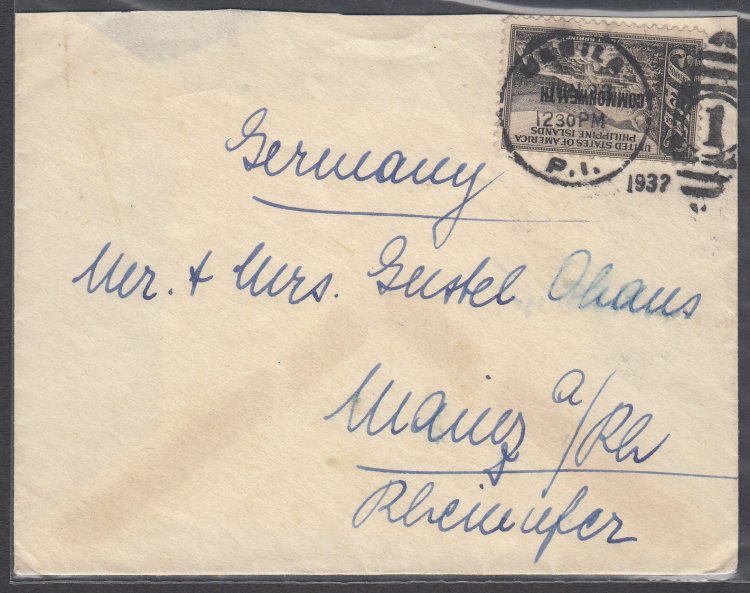 MANILA
12 30 PM
P.I.
1937
1
COMMONWEALTH
UNITED STATES OF AMERICA
PHILIPPINE ISLANDS
Germany
Mr. + Mrs. Gustel Ohaus
Mainz a/Rh
Rheinufer